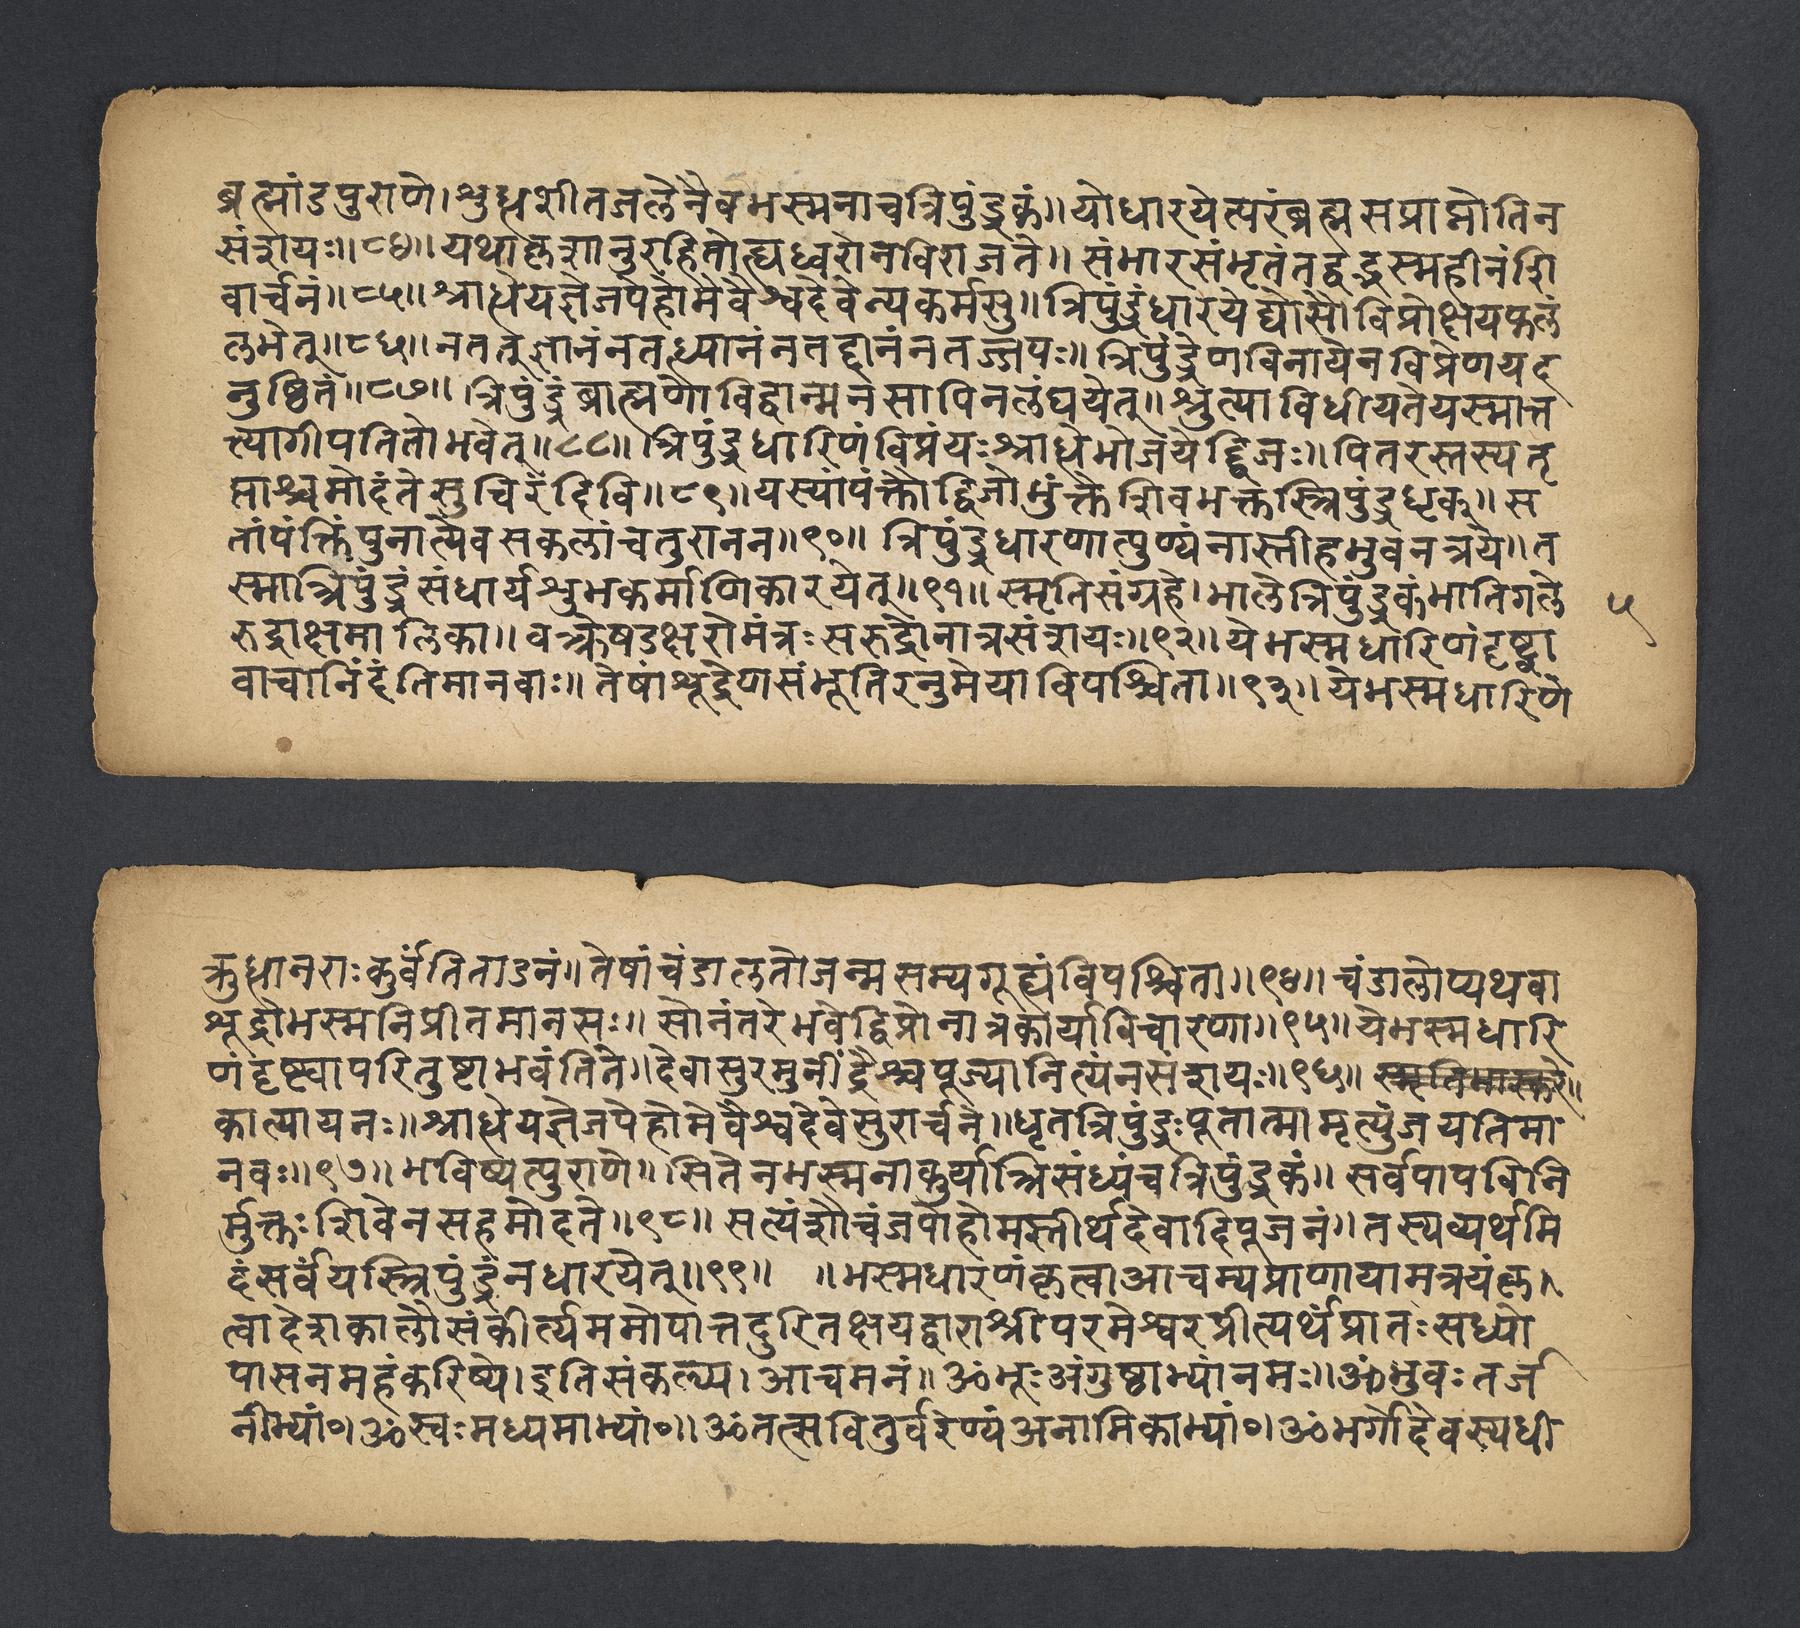 ब्रह्मांडपुराणे। शुद्धशीतजलेनैवभस्मनाचत्रिपुंड्रकं॥ योधारयेत्परंब्रह्मसप्राप्नोतिन
संशयः॥८४॥ यथाकृशानुरहितोह्यध्वरोनविराजते॥ संभारसंभृतंतद्वद्भस्महीनंशि
वार्चनं॥८५॥ श्राद्धेयज्ञेजपेहोमेवैश्वदेवेन्यकर्मसु॥ त्रिपुंड्रंधारयेद्योसौविप्रोक्षयफलं
लभेत्॥८६॥ नतत्तुज्ञानंनतत्ध्यानंनतद्दानंनतज्जपः॥ त्रिपुंड्रेणविनायेनविप्रेणयद
नुष्ठितं॥८७॥ त्रिपुंड्रंब्राह्मणोविद्वान्मनसापिनलंघयेत्॥ श्रुत्याविधीयतेयस्मात्त
त्त्यागीपतितोभवेत्॥८८॥ त्रिपुंड्रधारिणंविप्रंयःश्राद्धेभोजयेद्द्विजः॥ पितरस्तस्यतृ
प्ताश्चमोदंतेसुचिरंदिवि॥८९॥ यस्यांपंक्तौद्विजोभुंक्तेशिवभक्तस्त्रिपुंड्रधृक्॥ स
तांपंक्तिंपुनात्येवसकलांचतुरानन॥९०॥ त्रिपुंड्रधारणात्पुण्यंनास्तीहभुवनत्रये॥ त
स्मात्रिपुंड्रंसंधार्यशुभकर्माणिकारयेत्॥९१॥ स्मृतिसंग्रहे। भालेत्रिपुंड्रकंभातिगले
रुद्राक्षमालिका॥ वक्त्रेषडक्षरोमंत्रःसरुद्रोनात्रसंशयः॥९२॥ येभस्मधारिणंदृष्ट्वा
वाचानिंदंतिमानवाः॥ तेषांशूद्रेणसंभूतिरनुमेयाविपश्चिता॥९३॥ येभस्मधारिणे
५
क्रुद्धानराःकुर्वंतिताडनं॥ तेषांचंडालतोजन्मसम्यगूह्यंविपश्चिता॥९४॥ चंडालोप्यथवा
शूद्रोभस्मनिप्रीतमानसः॥ सोनंतरेभवेद्विप्रोनात्रकार्याविचारणा॥९५॥ येभस्मधारि
णंदृष्ट्वापरितुष्टाभवंतिते॥ देवासुरमुनींद्रैश्चपूज्यानित्यंनसंशयः॥९६॥ स्मृतिभास्करे॥
कात्यायनः॥ श्राद्धेयज्ञेजपेहोमेवैश्वदेवेसुरार्चने॥ धृतत्रिपुंड्रःपूतात्मामृत्युंजयतिमा
नवः॥९७॥ भविष्यत्पुराणे॥ सितेनभस्मनाकुर्यात्रिसंध्यंचत्रिपुंड्रकं॥ सर्वपापविनि
र्मुक्तःशिवेनसहमोदते॥९८॥ सत्यंशौचंजपोहोमस्तीर्थदेवादिपूजनं॥ तस्यव्यर्थमि
दंसर्वंयस्त्रिपुंड्रंनधारयेत्॥९९॥ ॥ भस्मधारणंकृत्वाआचम्यप्राणायामत्रयंकृ
त्वादेशकालौसंकीर्त्यममोपात्तदुरितक्षयद्वाराश्रीपरमेश्वरप्रीत्यर्थंप्रातःसध्यो
पासनमहंकरिष्ये। इतिसंकल्प्य। आचमनं॥ ॐभूःअंगुष्ठाभ्यांनमः॥ ॐभुवःतर्ज
नीभ्यां०। ॐस्वःमध्यमाभ्यां०॥ ॐतत्सवितुर्वरेण्यंअनामिकाभ्यां०। ॐभर्गोदेवस्यधी